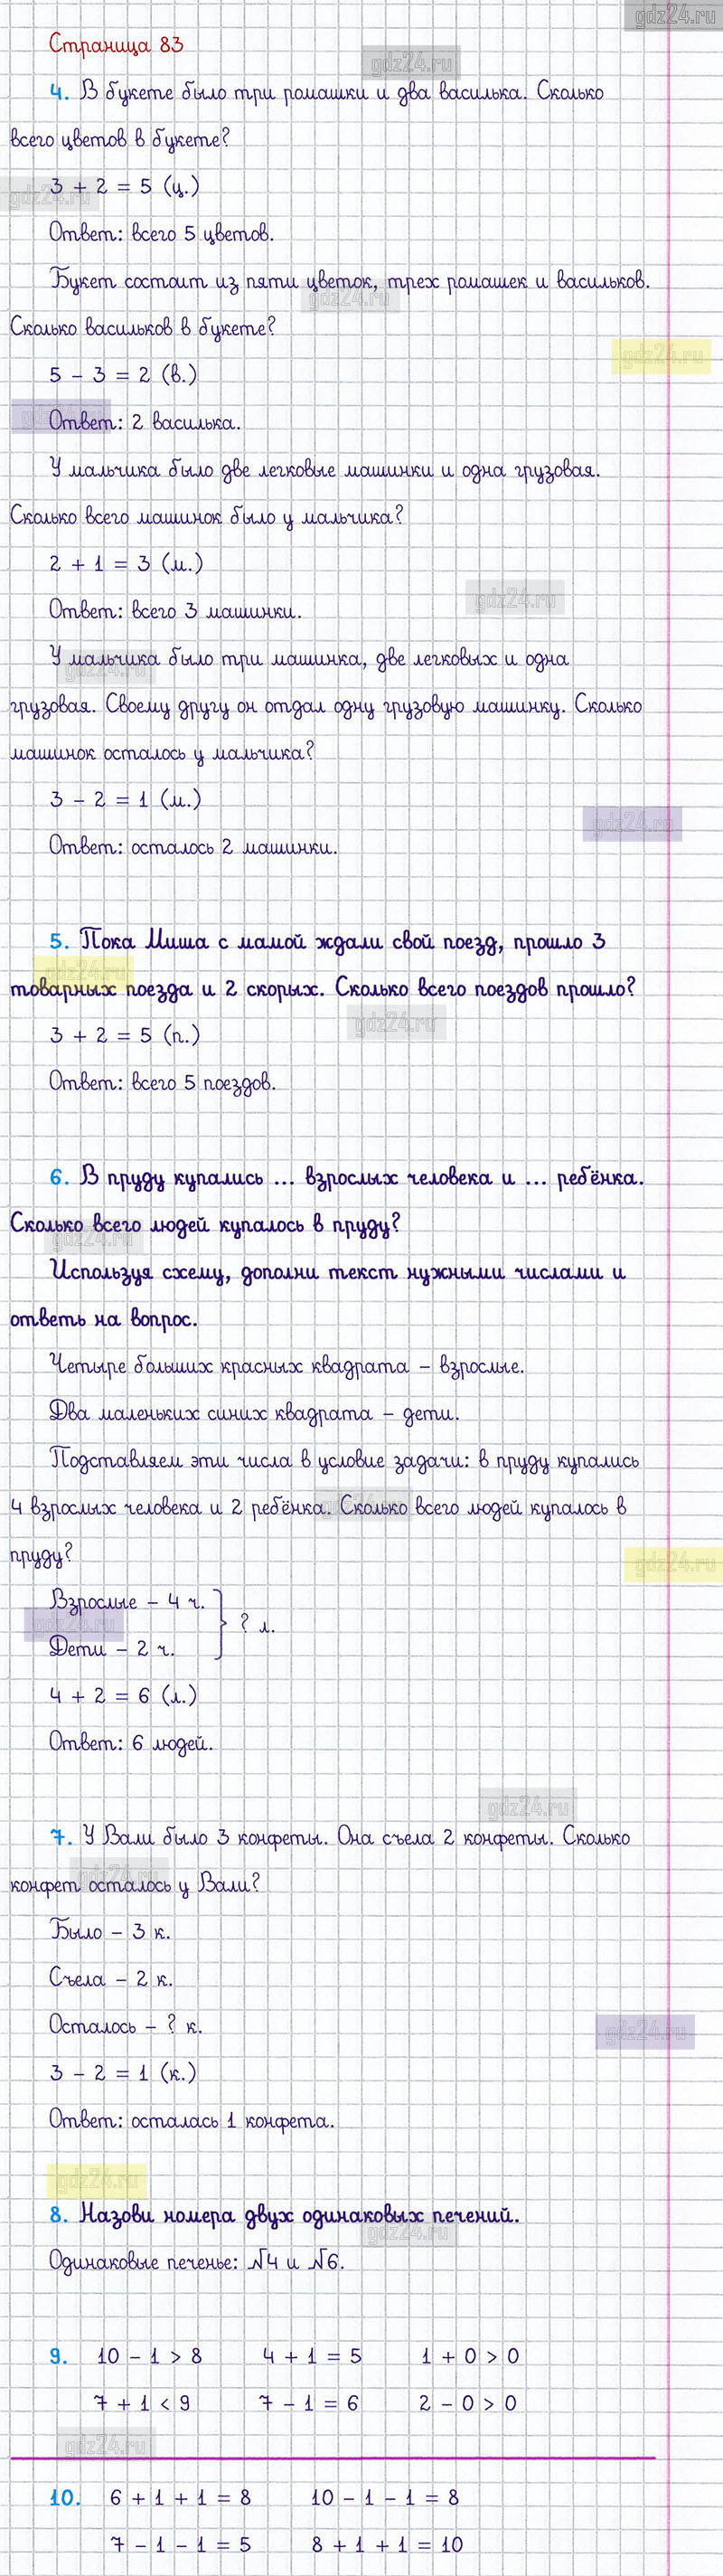 gdz24.ru
Страница 83
gdz24.ru
4. В букете было три ромашки и два василька. Сколько
всего цветов в букете?
3 + 2 = 5 (ц.)
gdz24.ru
Ответ: всего 5 цветов.
Букет состоит из пяти цветок, трех ромашек и васильков.
gdz24.ru
Сколько васильков в букете?
gdz24.ru
5 - 3 = 2 (в.)
Ответ: 2 василька.
У мальчика было две легковые машинки и одна грузовая.
Сколько всего машинок было у мальчика?
2 + 1 = 3 (м.)
gdz24.ru
Ответ: всего 3 машинки.
У мальчика было три машинка, две легковых и одна
gdz24.ru
грузовая. Своему другу он отдал одну грузовую машинку. Сколько
машинок осталось у мальчика?
3 - 2 = 1 (м.)
gdz24.ru
Ответ: осталось 2 машинки.
5. Пока Миша с мамой ждали свой поезд, прошло 3
gdz24.ru
товарных поезда и 2 скорых. Сколько всего поездов прошло?
gdz24.ru
3 + 2 = 5 (п.)
Ответ: всего 5 поездов.
6. В пруду купались ... взрослых человека и ... ребёнка.
Сколько всего людей купалось в пруду?
gdz24.ru
Используя схему, дополни текст нужными числами и
ответь на вопрос.
Четыре больших красных квадрата – взрослые.
Два маленьких синих квадрата – дети.
Подставляем эти числа в условие задачи: в пруду купались
4 взрослых человека и 2 ребёнка. Сколько всего людей купалось в
пруду?
gdz24.ru
Взрослые – 4 ч.
gdz24.ru
? л.
Дети – 2 ч.
4 + 2 = 6 (л.)
Ответ: 6 людей.
gdz24.ru
7. У Вали было 3 конфеты. Она съела 2 конфеты. Сколько
gdz24.ru
конфет осталось у Вали?
Было – 3 к.
Съела – 2 к.
Осталось – ? к.
gdz24.ru
3 - 2 = 1 (к.)
Ответ: осталась 1 конфета.
gdz24.ru
8. Назови номера двух одинаковых печений.
gdz24.ru
Одинаковые печенье: №4 и №6.
9. 10 - 1 > 8 4 + 1 = 5 1 + 0 > 0
7 + 1 < 9 7 - 1 = 6 2 - 0 > 0
gdz24.ru
10. 6 + 1 + 1 = 8 10 - 1 - 1 = 8
7 - 1 - 1 = 5 8 + 1 + 1 = 10